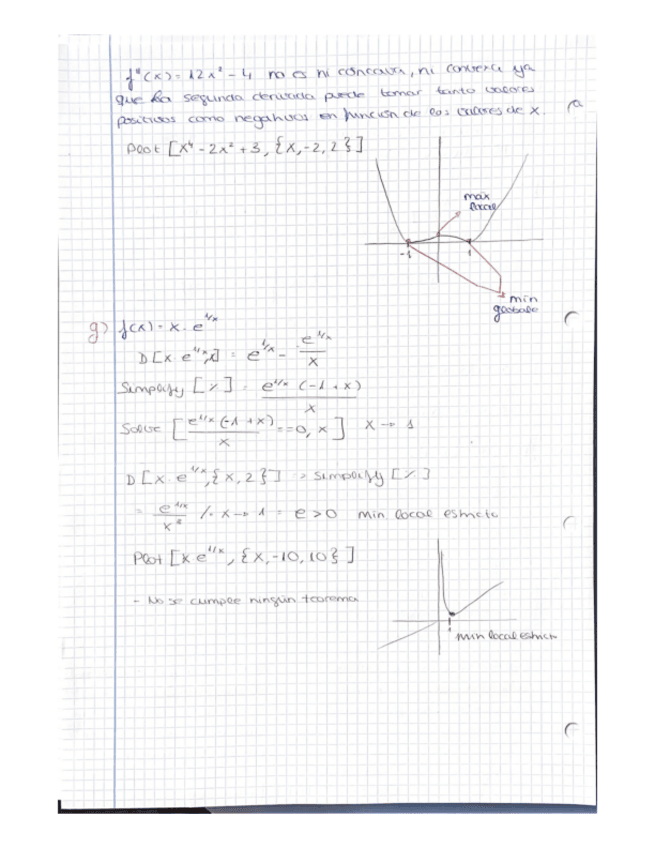 f''(x) = 12x² - 4, no es ni cóncava, ni convexa ya
que la segunda derivada puede tomar tanto valores
positivos como negativos en función de los valores de x.
Plot [x⁴ - 2x² + 3, {x, -2, 2}]
max
local
-1
1
min
globales
g) f(x) = x · e^1/x
D[x · e^1/x, x] = e^1/x - e^1/x / x
Simplify [%] = e^1/x (-1 + x) / x
Solve [e^1/x (-1 + x) / x == 0, x] x → 1
D[x · e^1/x, {x, 2}] → Simplify [%]
= e^1/x / x³ /. x → 1 = e > 0 min local estricto
Plot [x e^1/x, {x, -10, 10}]
- No se cumple ningún teorema
1
min local estricto